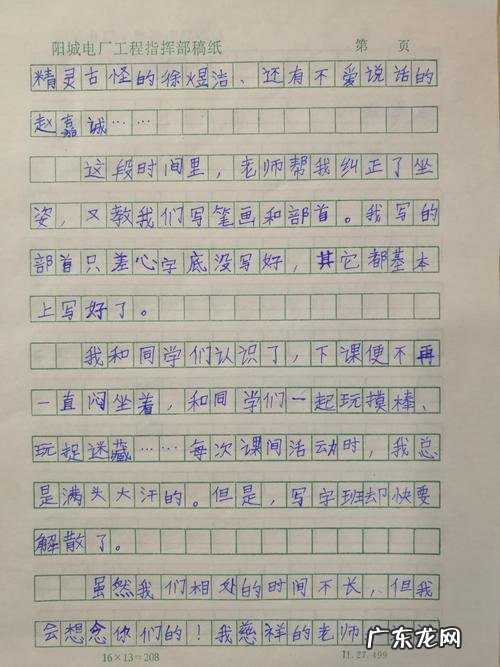 阳城电厂工程指挥部稿纸 第 页
精灵古怪的徐煜洁、还有不爱说话的
赵嘉诚……
这段时间里，老师帮我纠正了坐
姿，又教我们写笔画和部首。我写的
部首只差心字底没写好，其它都基本
上写好了。
我和同学们认识了，下课便不再
一直闷坐着，和同学们一起玩摸棒、
玩捉迷藏……每次课间活动时，我总
是满头大汗的。但是，写字班却快要
解散了。
虽然我们相处的时间不长，但我
会想念你们的！我慈祥的老师
16×13=208
广东龙网